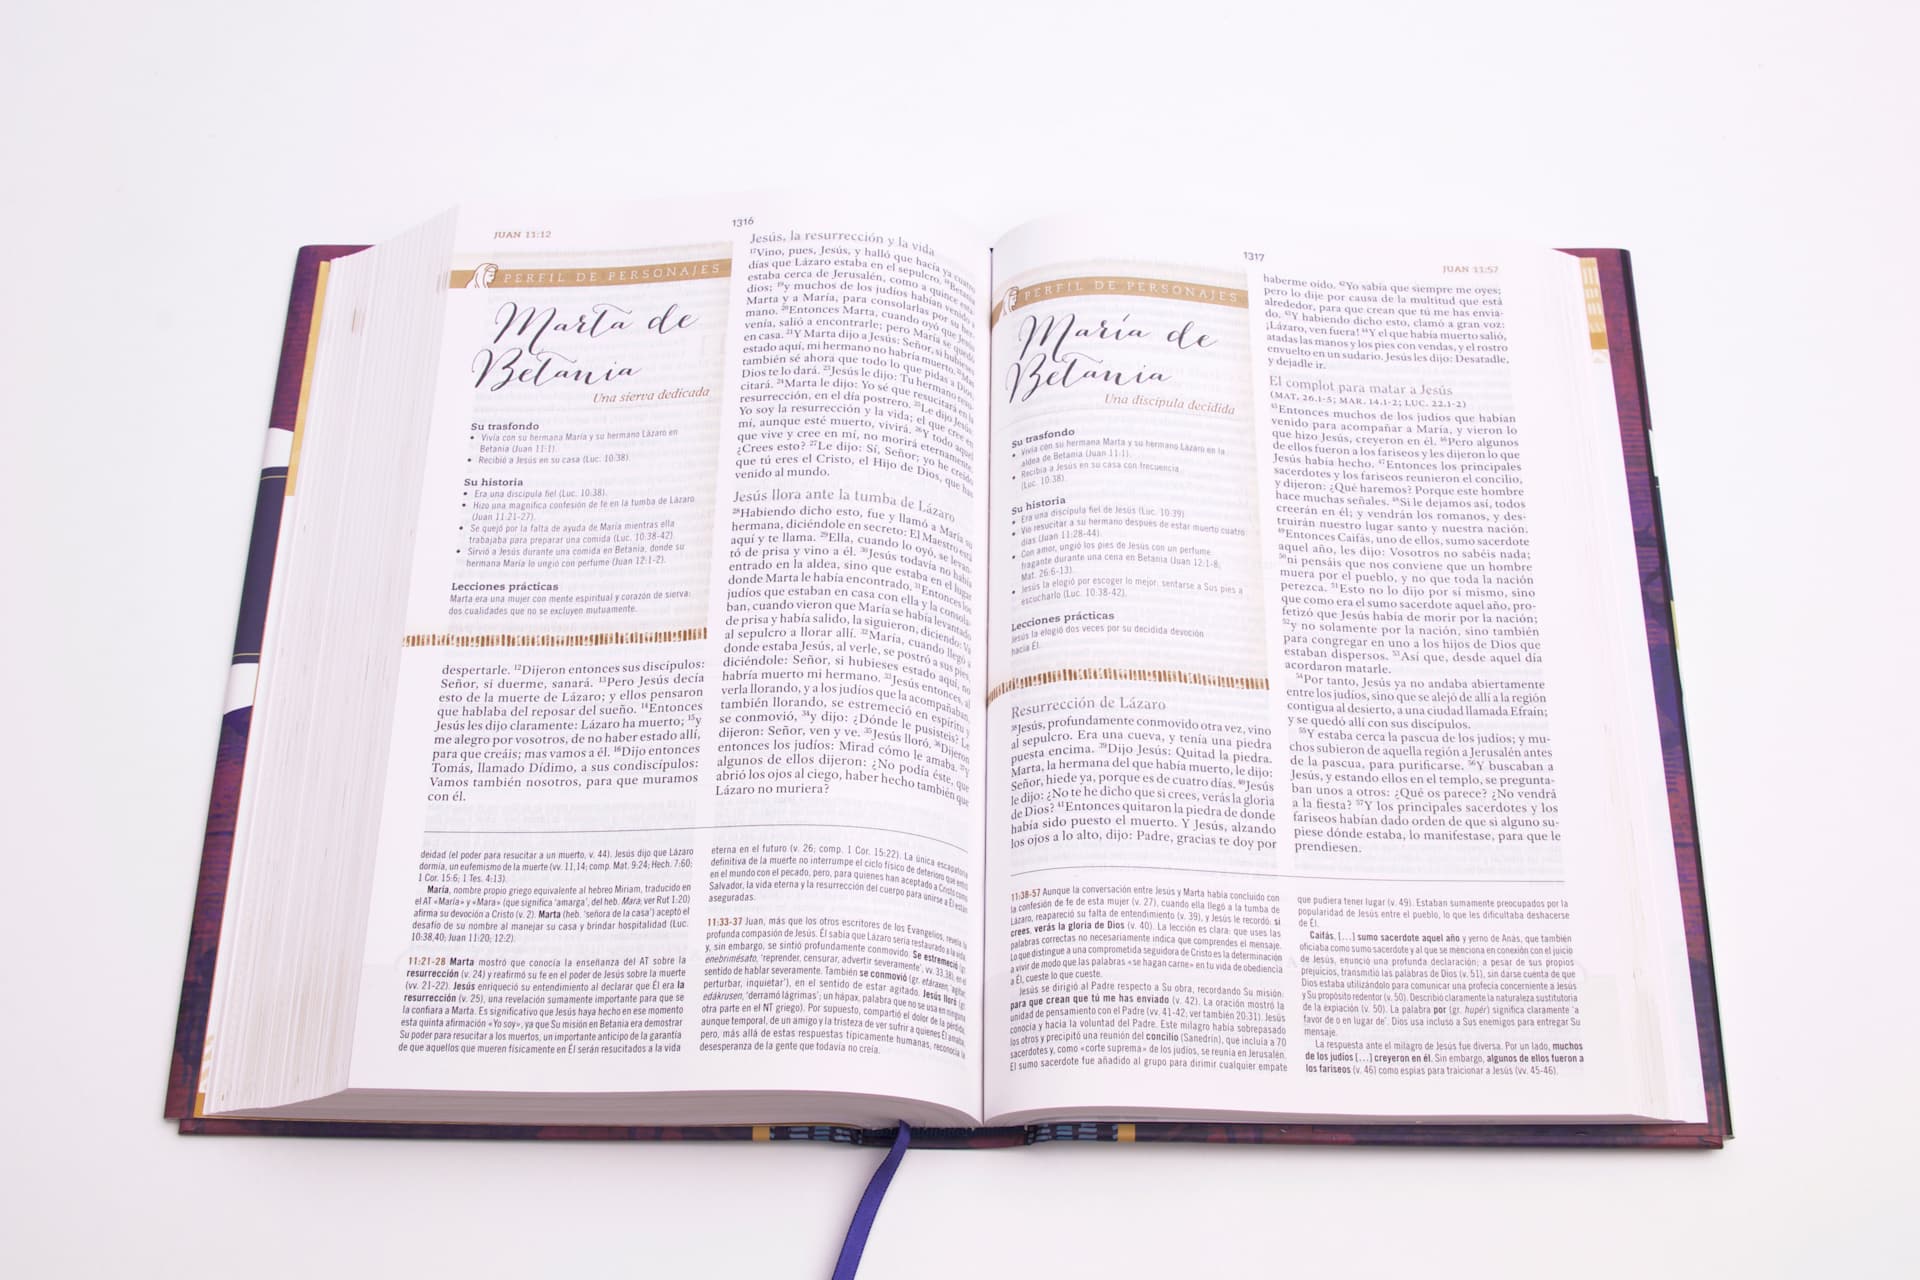 JUAN 11:12
1316
PERFIL DE PERSONAJES
Marta de
Betania
Una sierva dedicada
Su trasfondo
• Vivía con su hermana María y su hermano Lázaro en
Betania (Juan 11:1).
• Recibió a Jesús en su casa (Luc. 10:38).
Su historia
• Era una discípula fiel (Luc. 10:38).
• Hizo una magnífica confesión de fe en la tumba de Lázaro
(Juan 11:21-27).
• Se quejó por la falta de ayuda de María mientras ella
trabajaba para preparar una comida (Luc. 10:38-42).
• Sirvió a Jesús durante una comida en Betania, donde su
hermana María lo ungió con perfume (Juan 12:1-2).
Lecciones prácticas
Marta era una mujer con mente espiritual y corazón de sierva:
dos cualidades que no se excluyen mutuamente.
despertarle. 12Dijeron entonces sus discípulos:
Señor, si duerme, sanará. 13Pero Jesús decía
esto de la muerte de Lázaro; y ellos pensaron
que hablaba del reposar del sueño. 14Entonces
Jesús les dijo claramente: Lázaro ha muerto; 15y
me alegro por vosotros, de no haber estado allí,
para que creáis; mas vamos a él. 16Dijo entonces
Tomás, llamado Dídimo, a sus condiscípulos:
Vamos también nosotros, para que muramos
con él.
Jesús, la resurrección y la vida
17Vino, pues, Jesús, y halló que hacía ya cuatro
días que Lázaro estaba en el sepulcro. 18Betania
estaba cerca de Jerusalén, como a quince esta-
dios; 19y muchos de los judíos habían venido a
Marta y a María, para consolarlas por su her-
mano. 20Entonces Marta, cuando oyó que Jesús
venía, salió a encontrarle; pero María se quedó
en casa. 21Y Marta dijo a Jesús: Señor, si hubieses
estado aquí, mi hermano no habría muerto. 22Mas
también sé ahora que todo lo que pidas a Dios,
Dios te lo dará. 23Jesús le dijo: Tu hermano resu-
citará. 24Marta le dijo: Yo sé que resucitará en la
resurrección, en el día postrero. 25Le dijo Jesús:
Yo soy la resurrección y la vida; el que cree en
mí, aunque esté muerto, vivirá. 26Y todo aquel
que vive y cree en mí, no morirá eternamente.
¿Crees esto? 27Le dijo: Sí, Señor; yo he creído
que tú eres el Cristo, el Hijo de Dios, que has
venido al mundo.
Jesús llora ante la tumba de Lázaro
28Habiendo dicho esto, fue y llamó a María su
hermana, diciéndole en secreto: El Maestro está
aquí y te llama. 29Ella, cuando lo oyó, se levan-
tó de prisa y vino a él. 30Jesús todavía no había
entrado en la aldea, sino que estaba en el lugar
donde Marta le había encontrado. 31Entonces los
judíos que estaban en casa con ella y la consola-
ban, cuando vieron que María se había levantado
de prisa y había salido, la siguieron, diciendo: Va
al sepulcro a llorar allí. 32María, cuando llegó a
donde estaba Jesús, al verle, se postró a sus pies,
diciéndole: Señor, si hubieses estado aquí, no
habría muerto mi hermano. 33Jesús entonces, al
verla llorando, y a los judíos que la acompañaban,
también llorando, se estremeció en espíritu y
se conmovió, 34y dijo: ¿Dónde le pusisteis? Le
dijeron: Señor, ven y ve. 35Jesús lloró. 36Dijeron
entonces los judíos: Mirad cómo le amaba. 37Y
algunos de ellos dijeron: ¿No podía éste, que
abrió los ojos al ciego, haber hecho también que
Lázaro no muriera?
deidad (el poder para resucitar a un muerto, v. 44). Jesús dijo que Lázaro
dormía, un eufemismo de la muerte (vv. 11,14; comp. Mat. 9:24; Hech. 7:60;
1 Cor. 15:6; 1 Tes. 4:13).
María, nombre propio griego equivalente al hebreo Miriam, traducido en
el AT «María» y «Mara» (que significa 'amarga', del heb. Mara; ver Rut 1:20)
afirma su devoción a Cristo (v. 2). Marta (heb. 'señora de la casa') aceptó el
desafío de su nombre al manejar su casa y brindar hospitalidad (Luc.
10:38,40; Juan 11:20; 12:2).
11:21-28 Marta mostró que conocía la enseñanza del AT sobre la
resurrección (v. 24) y reafirmó su fe en el poder de Jesús sobre la muerte
(vv. 21-22). Jesús enriqueció su entendimiento al declarar que Él era la
resurrección (v. 25), una revelación sumamente importante para que se
la confiara a Marta. Es significativo que Jesús haya hecho en ese momento
esta quinta afirmación «Yo soy», ya que Su misión en Betania era demostrar
Su poder para resucitar a los muertos, un importante anticipo de la garantía
de que aquellos que mueren físicamente en Él serán resucitados a la vida
eterna en el futuro (v. 26; comp. 1 Cor. 15:22). La única escapatoria
definitiva de la muerte no interrumpe el ciclo físico de deterioro que entró
en el mundo con el pecado, pero, para quienes han aceptado a Cristo como
Salvador, la vida eterna y la resurrección del cuerpo para unirse a Él están
aseguradas.
11:33-37 Juan, más que los otros escritores de los Evangelios, revela la
profunda compasión de Jesús. Él sabía que Lázaro sería restaurado a la vida
y, sin embargo, se sintió profundamente conmovido. Se estremeció (gr.
enebrimésato, 'reprender, censurar, advertir severamente', vv. 33,38), en el
sentido de hablar severamente. También se conmovió (gr. etáraxen, 'agitar,
perturbar, inquietar'), en el sentido de estar agitado. Jesús lloró (gr.
edákrusen, 'derramó lágrimas'; un hápax, palabra que no se usa en ninguna
otra parte en el NT griego). Por supuesto, compartió el dolor de la pérdida,
aunque temporal, de un amigo y la tristeza de ver sufrir a quienes Él amaba,
pero, más allá de estas respuestas típicamente humanas, reconocía la
desesperanza de la gente que todavía no creía.
1317
JUAN 11:57
PERFIL DE PERSONAJES
María de
Betania
Una discípula decidida
Su trasfondo
• Vivía con su hermana Marta y su hermano Lázaro en la
aldea de Betania (Juan 11:1).
• Recibía a Jesús en su casa con frecuencia
(Luc. 10:38).
Su historia
• Era una discípula fiel de Jesús (Luc. 10:39).
• Vio resucitar a su hermano después de estar muerto cuatro
días (Juan 11:28-44).
• Con amor, ungió los pies de Jesús con un perfume
fragante durante una cena en Betania (Juan 12:1-8;
Mat. 26:6-13).
• Jesús la elogió por escoger lo mejor: sentarse a Sus pies a
escucharlo (Luc. 10:38-42).
Lecciones prácticas
Jesús la elogió dos veces por su decidida devoción
hacia Él.
Resurrección de Lázaro
38Jesús, profundamente conmovido otra vez, vino
al sepulcro. Era una cueva, y tenía una piedra
puesta encima. 39Dijo Jesús: Quitad la piedra.
Marta, la hermana del que había muerto, le dijo:
Señor, hiede ya, porque es de cuatro días. 40Jesús
le dijo: ¿No te he dicho que si crees, verás la gloria
de Dios? 41Entonces quitaron la piedra de donde
había sido puesto el muerto. Y Jesús, alzando
los ojos a lo alto, dijo: Padre, gracias te doy por
haberme oído. 42Yo sabía que siempre me oyes;
pero lo dije por causa de la multitud que está
alrededor, para que crean que tú me has envia-
do. 43Y habiendo dicho esto, clamó a gran voz:
¡Lázaro, ven fuera! 44Y el que había muerto salió,
atadas las manos y los pies con vendas, y el rostro
envuelto en un sudario. Jesús les dijo: Desatadle,
y dejadle ir.
El complot para matar a Jesús
(MAT. 26.1-5; MAR. 14.1-2; LUC. 22.1-2)
45Entonces muchos de los judíos que habían
venido para acompañar a María, y vieron lo
que hizo Jesús, creyeron en él. 46Pero algunos
de ellos fueron a los fariseos y les dijeron lo que
Jesús había hecho. 47Entonces los principales
sacerdotes y los fariseos reunieron el concilio,
y dijeron: ¿Qué haremos? Porque este hombre
hace muchas señales. 48Si le dejamos así, todos
creerán en él; y vendrán los romanos, y des-
truirán nuestro lugar santo y nuestra nación.
49Entonces Caifás, uno de ellos, sumo sacerdote
aquel año, les dijo: Vosotros no sabéis nada;
50ni pensáis que nos conviene que un hombre
muera por el pueblo, y no que toda la nación
perezca. 51Esto no lo dijo por sí mismo, sino
que como era el sumo sacerdote aquel año, pro-
fetizó que Jesús había de morir por la nación;
52y no solamente por la nación, sino también
para congregar en uno a los hijos de Dios que
estaban dispersos. 53Así que, desde aquel día
acordaron matarle.
54Por tanto, Jesús ya no andaba abiertamente
entre los judíos, sino que se alejó de allí a la región
contigua al desierto, a una ciudad llamada Efraín;
y se quedó allí con sus discípulos.
55Y estaba cerca la pascua de los judíos; y mu-
chos subieron de aquella región a Jerusalén antes
de la pascua, para purificarse. 56Y buscaban a
Jesús, y estando ellos en el templo, se pregunta-
ban unos a otros: ¿Qué os parece? ¿No vendrá
a la fiesta? 57Y los principales sacerdotes y los
fariseos habían dado orden de que si alguno su-
piese dónde estaba, lo manifestase, para que le
prendiesen.
11:38-57 Aunque la conversación entre Jesús y Marta había concluido con
la confesión de fe de esta mujer (v. 27), cuando ella llegó a la tumba de
Lázaro, reapareció su falta de entendimiento (v. 39), y Jesús le recordó: si
crees, verás la gloria de Dios (v. 40). La lección es clara: que uses las
palabras correctas no necesariamente indica que comprendes el mensaje.
Lo que distingue a una comprometida seguidora de Cristo es la determinación
a vivir de modo que las palabras «se hagan carne» en tu vida de obediencia
a Él, cueste lo que cueste.
Jesús se dirigió al Padre respecto a Su obra, recordando Su misión:
para que crean que tú me has enviado (v. 42). La oración mostró la
unidad de pensamiento con el Padre (vv. 41-42; ver también 20:31). Jesús
conocía y hacía la voluntad del Padre. Este milagro había sobrepasado
los otros y precipitó una reunión del concilio (Sanedrín), que incluía a 70
sacerdotes y, como «corte suprema» de los judíos, se reunía en Jerusalén.
El sumo sacerdote fue añadido al grupo para dirimir cualquier empate
que pudiera tener lugar (v. 49). Estaban sumamente preocupados por la
popularidad de Jesús entre el pueblo, lo que les dificultaba deshacerse
de Él.
Caifás, [...] sumo sacerdote aquel año y yerno de Anás, que también
oficiaba como sumo sacerdote y al que se menciona en conexión con el juicio
de Jesús, enunció una profunda declaración; a pesar de sus propios
prejuicios, transmitió las palabras de Dios (v. 51), sin darse cuenta de que
Dios estaba utilizándolo para comunicar una profecía concerniente a Jesús
y Su propósito redentor (v. 50). Describió claramente la naturaleza sustitutoria
de la expiación (v. 50). La palabra por (gr. hupér) significa claramente 'a
favor de o en lugar de'. Dios usa incluso a Sus enemigos para entregar Su
mensaje.
La respuesta ante el milagro de Jesús fue diversa. Por un lado, muchos
de los judíos [...] creyeron en él. Sin embargo, algunos de ellos fueron a
los fariseos (v. 46) como espías para traicionar a Jesús (vv. 45-46).